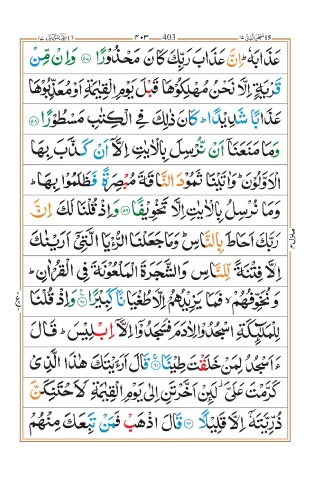 403 ۴۰۳
عَذَابَهٗ ؕ اِنَّ عَذَابَ رَبِّكَ كَانَ مَحْذُوْرًا ﴿۵۷﴾ وَاِنْ مِّنْ
قَرْيَةٍ اِلَّا نَحْنُ مُهْلِكُوْهَا قَبْلَ يَوْمِ الْقِيٰمَةِ اَوْ مُعَذِّبُوْهَا
عَذَابًا شَدِيْدًا ؕ كَانَ ذٰلِكَ فِى الْكِتٰبِ مَسْطُوْرًا ﴿۵۸﴾
وَمَا مَنَعَنَاۤ اَنْ نُّرْسِلَ بِالْاٰيٰتِ اِلَّاۤ اَنْ كَذَّبَ بِهَا
الْاَوَّلُوْنَ ؕ وَاٰتَيْنَا ثَمُوْدَ النَّاقَةَ مُبْصِرَةً فَظَلَمُوْا بِهَا ؕ
وَمَا نُرْسِلُ بِالْاٰيٰتِ اِلَّا تَخْوِيْفًا ﴿۵۹﴾ وَاِذْ قُلْنَا لَكَ اِنَّ
رَبَّكَ اَحَاطَ بِالنَّاسِ ؕ وَمَا جَعَلْنَا الرُّءْيَا الَّتِىْۤ اَرَيْنٰكَ
اِلَّا فِتْنَةً لِّلنَّاسِ وَالشَّجَرَةَ الْمَلْعُوْنَةَ فِى الْقُرْاٰنِ ؕ
وَنُخَوِّفُهُمْ ۙ فَمَا يَزِيْدُهُمْ اِلَّا طُغْيَانًا كَبِيْرًا ﴿۶۰﴾ وَاِذْ قُلْنَا
لِلْمَلٰٓئِكَةِ اسْجُدُوْا لِاٰدَمَ فَسَجَدُوْۤا اِلَّاۤ اِبْلِيْسَ ؕ قَالَ
ءَاَسْجُدُ لِمَنْ خَلَقْتَ طِيْنًا ﴿۶۱﴾ قَالَ اَرَءَيْتَكَ هٰذَا الَّذِىْ
كَرَّمْتَ عَلَىَّ ؗ لَئِنْ اَخَّرْتَنِ اِلٰى يَوْمِ الْقِيٰمَةِ لَاَحْتَنِكَنَّ
ذُرِّيَّتَهٗۤ اِلَّا قَلِيْلًا ﴿۶۲﴾ قَالَ اذْهَبْ فَمَنْ تَبِعَكَ مِنْهُمْ